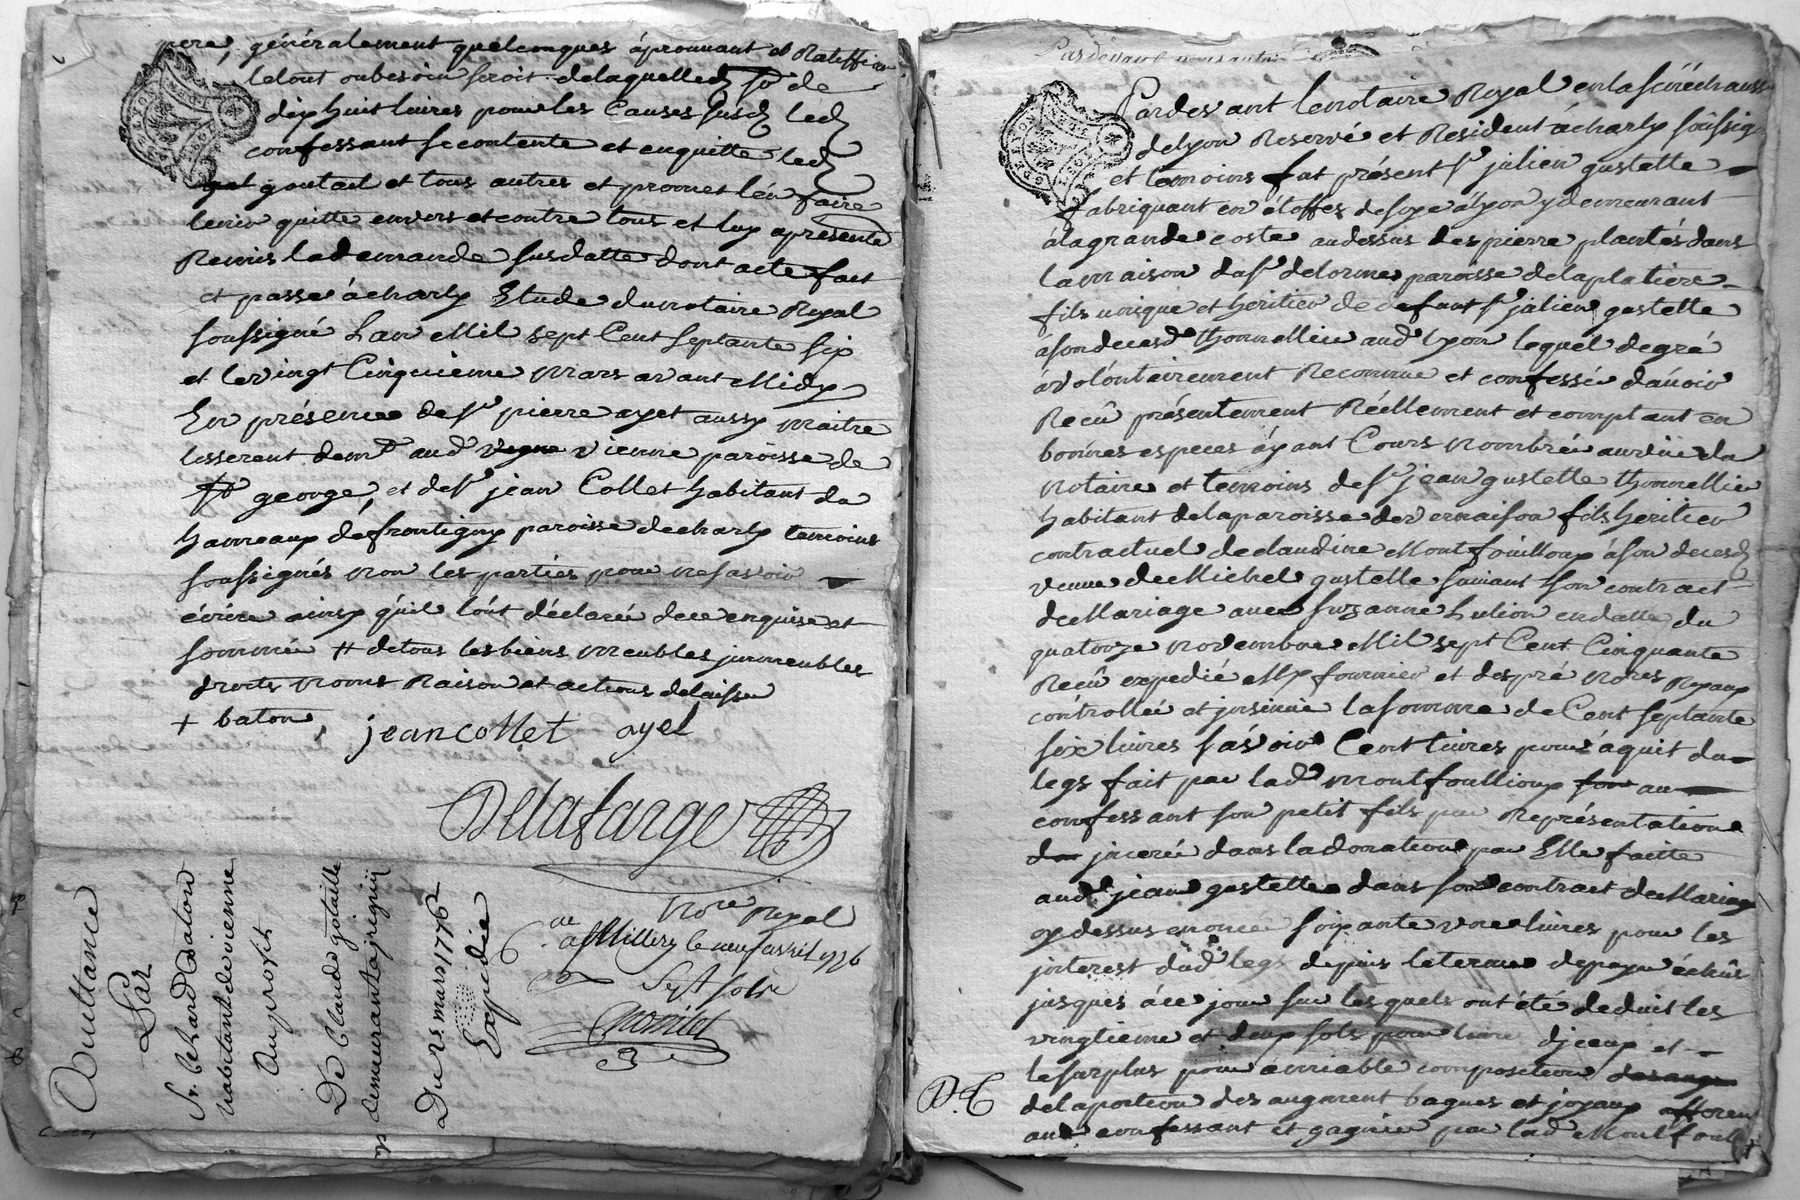 pere, généralement quelconques áprouvant et Rateffiant
letout oubesoin seroit delaquelled. so.e de
dix huit livres pour les Causes susd. led.
confessant se contente et enquitte led.
gotail et tous autres et promet len faire
tenir quitte envers et contre tous et luy apresente
Remis lademande susdatte dont acte fait
et passé ácharly Etude dunotaire Royal
soussigné Lan Mil sept Cent septante six
et levingt Cinquieme Mars avant Midy
En présence de sr. pierre ayet aussy maitre
tisserent dem.t aud. vienne paroisse de
st. george, et de sr. jean Collet habitant du
hameaux defrontigny paroisse decharly temoins
soussignés non les parties pour nesavoir
écrire ainsy quil lont déclaré dece enquise et
sommé # detous lesbiens meubles jmmeubles
droits noms Raison et actions delaissee
+ baton,
jean collet ayet
Delafarge
no.re royal
a Millery le neuf avril 1776
sept sols
Quittance
Par
Sr. Baton
habitant de vienne
Au profit
De Claude gotaille
demeurant a
Du 25 mars 1776
Expediée
Pardevant
Pardevant lenotaire Royal enlasénéchaussée
delyon Reservé et Résident ácharly soussigné
et temoins fut présent sr. julien gustelle
fabriquant en étoffes desoye ályon ydemeurant
álagrande coste audessus des pierre plantés dans
lamaison dusr. delorme paroisse delaplatiere
fils unique et héritier de defunt sr. julien gustelle
ásondeced. thonnellier aud. lyon lequel degré
ávolontairement Reconnu et confessé davoir
Recû présentement Réellement et comptant en
bonnes especes áyant Cours nombréé aureüe du
notaire et temoins de sr. jean gustelle thonnellier
habitant delaparoisse devernaison fils heritier
contractuel declaudine Montfouilloux áson deced.
veuve deMichel gustelle suivant son contract
deMariage avec suzanne hulion endatte du
quatorze novembre Mil sept Cent Cinquante
Recû expedié Me. fournier et despré no.res Royaux
contrôllé et jnsinué lasomme deCent septante
six livres sávoir Cent livres pour l'áquit du
legs fait par lad. Montfoullioux au
confessant son petit fils par Représentation
jnceréé dans ladonation par Elle faitte
aud. jean gustelle dans son contract deMariage
cy dessus enonce soixante une livres pour les
jnterest dud. legs depuis leterme depaye échûs
jusques áce jour sur lesquels ont été deduit les
vingtieme et deux sols pour livre djceux et
lesurplus pour ámiable composition
delaportion des augment bagues et joyaux afferen
aud. confessant et gagnée par lad. Montfoull
D. G